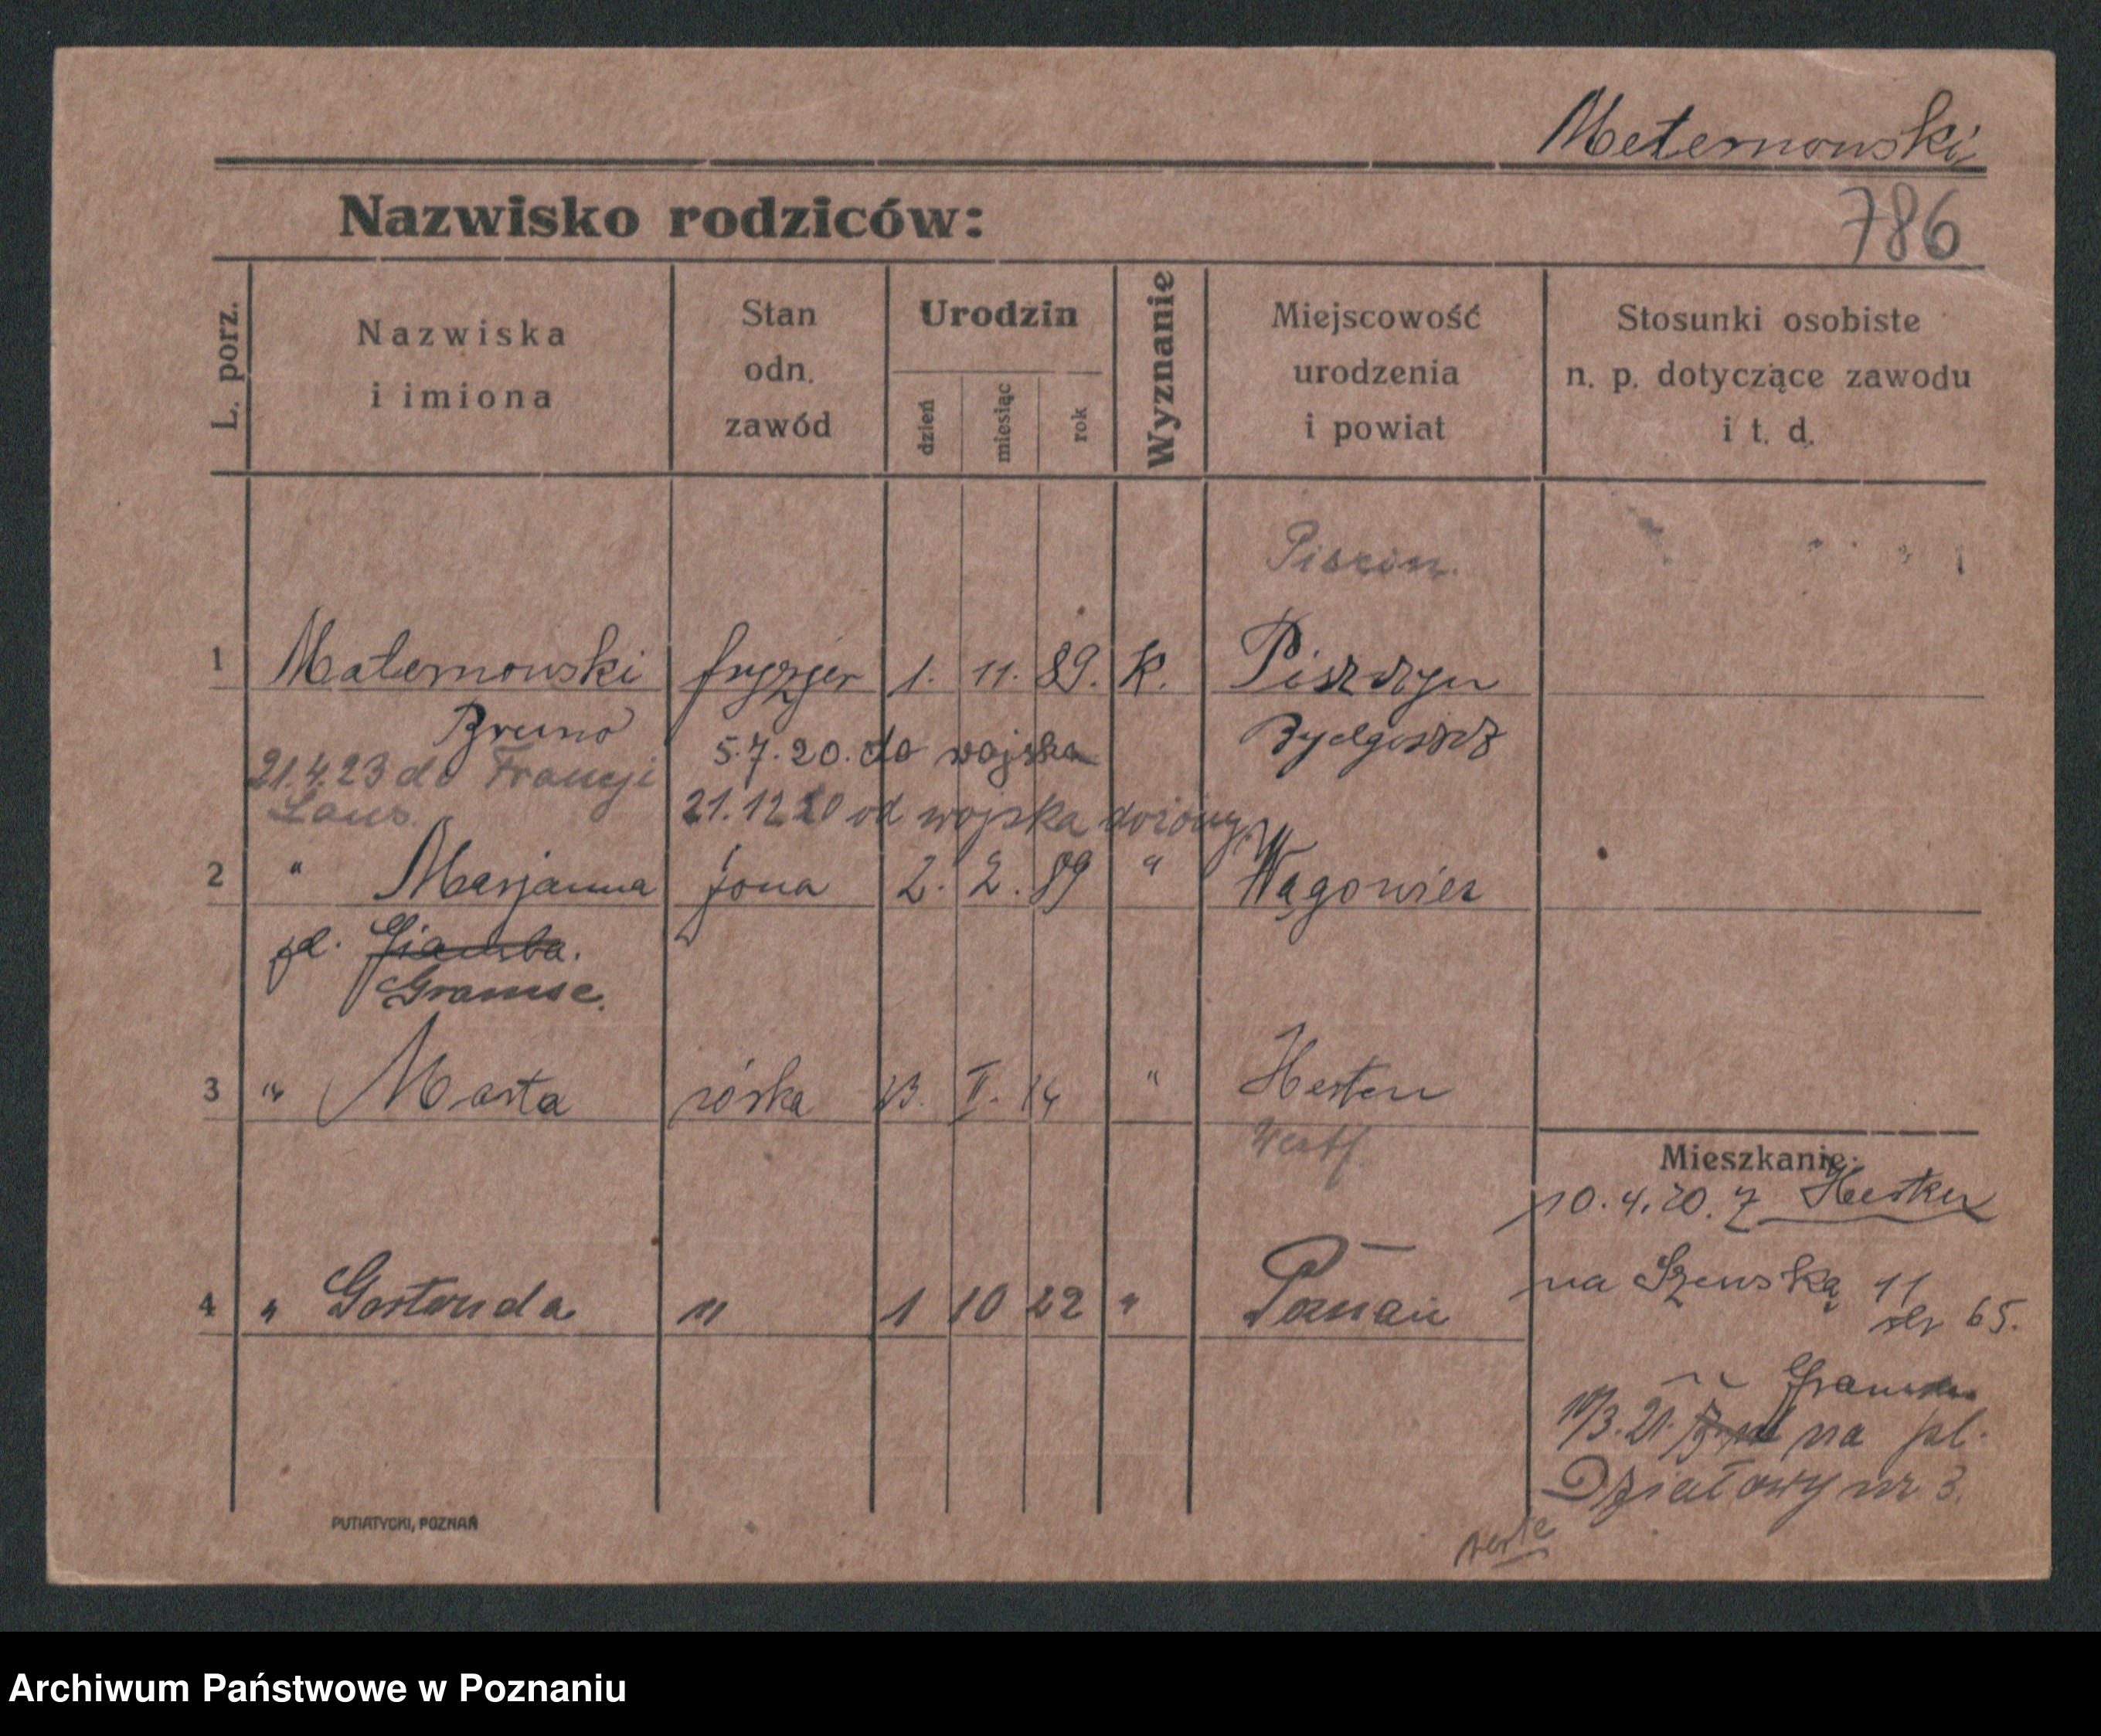 Maternowski
786
Nazwisko rodziców:
L. porz.
Nazwiska
i imiona
Stan
odn.
zawód
Urodzin
dzień
miesiąc
rok
Wyznanie
Miejscowość
urodzenia
i powiat
Stosunki osobiste
n. p. dotyczące zawodu
i t. d.
1 Maternowski fryzjer 1. 11. 89. K.
Bruno 5.7.20. do wojska
21.4.23 do Francji
21.12.20 od wojska
2 " Marjanna żona 2. 2. 89 "
Gramse.
3 " Marta córka 13. II. 14 " Herten
Westf.
4 " " 1 10 22 " Poznań
Mieszkanie:
10.4.20. z Herten
na Szewską 11
65.
na pl.
Działowy nr 3.
verte
PUTIATYCKI, POZNAŃ
Archiwum Państwowe w Poznaniu